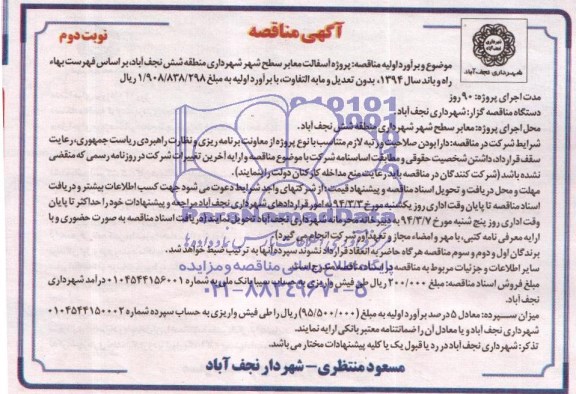 آگهی مناقصه
نوبت دوم
شهرداری نجف آباد
موضوع و برآورد اولیه مناقصه: پروژه آسفالت معابر سطح شهر شهرداری منطقه شش نجف آباد، بر اساس فهرست بهاء
راه و باند سال ۱۳۹۴، بدون تعدیل و مابه التفاوت، با برآورد اولیه به مبلغ ۱/۹۰۸/۸۳۸/۲۹۸ ریال
مدت اجرای پروژه: ۹۰ روز
دستگاه مناقصه گزار: شهرداری نجف آباد.
محل اجرای پروژه: معابر سطح شهر شهرداری منطقه شش نجف آباد.
شرایط شرکت در مناقصه: دارا بودن صلاحیت و رتبه لازم متناسب با نوع پروژه از معاونت برنامه ریزی و نظارت راهبردی ریاست جمهوری، رعایت
سقف قرارداد، داشتن شخصیت حقوقی و مطابقت اساسنامه شرکت با موضوع مناقصه و ارایه آخرین تغییرات شرکت در روزنامه رسمی که منقضی
نشده باشد (شرکت کنندگان در مناقصه باید رعایت منع مداخله کارکنان دولت را بنمایند).
مهلت و محل دریافت و تحویل اسناد مناقصه و پیشنهاد قیمت: از شرکتهای واجد شرایط دعوت می شود جهت کسب اطلاعات بیشتر و دریافت
اسناد مناقصه تا پایان وقت اداری روز یکشنبه مورخ ۹۴/۳/۳ به امور قراردادهای شهرداری نجف آباد مراجعه و پیشنهادات خود را حداکثر تا پایان
وقت اداری روز پنج شنبه مورخ ۹۴/۳/۷ به دبیرخانه محرمانه شهرداری نجف آباد تحویل نمایند (دریافت اسناد مناقصه به صورت حضوری و با
ارایه معرفی نامه کتبی، با مهر و امضاء مجاز و تعهدآور شرکت انجام می گیرد)
برندگان اول و دوم و سوم مناقصه هرگاه حاضر به انعقاد قرارداد نشوند سپرده آنها به ترتیب ضبط خواهد شد.
سایر اطلاعات و جزئیات مربوط به مناقصه در اسناد مناقصه مندرج است
مبلغ فروش اسناد مناقصه: مبلغ ۲۰۰/۰۰۰ ریال طی فیش واریزی به حساب سیبا بانک ملی به شماره ۰۱۰۴۵۴۴۱۵۶۰۰۱ درآمد شهرداری
نجف آباد.
میزان سپرده: معادل ۵ درصد برآورد اولیه به مبلغ (۹۵/۵۰۰/۰۰۰) ریال را طی فیش واریزی به حساب سپرده شماره ۰۱۰۴۵۴۴۱۵۰۰۰۲
شهرداری نجف آباد و یا معادل آن را ضمانتنامه معتبر بانکی ارایه نمایند.
تذکر: شهرداری نجف آباد در رد یا قبول یک یا کلیه پیشنهادات مختار می باشد.
مسعود منتظری - شهردار نجف آباد
پایگاه اطلاع رسانی مناقصه و مزایده
۰۲۱-۸۸۳۴۹۶۷۰-۵